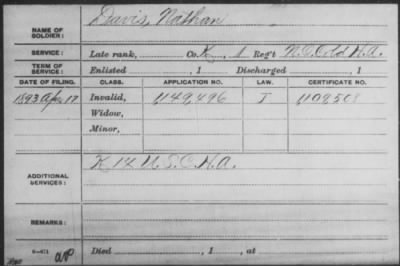 NAME OF SOLDIER: Davis, Nathan
SERVICE: Late rank, Co. K, 1 Reg't N.C. Cold H.A.
TERM OF SERVICE: Enlisted , 1 Discharged , 1
DATE OF FILING. CLASS. APPLICATION NO. LAW. CERTIFICATE NO.
1893 Apr 17 Invalid, 1149,496 I 1108508
Widow,
Minor,
ADDITIONAL SERVICES: K 14 U.S.C.H.A.
REMARKS:
Died , 1 , at